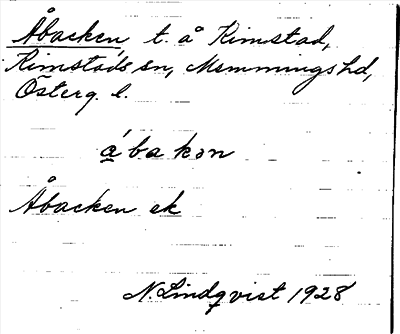 Åbacken t. å Kimstad,
Kimstads sn, Memmings hd,
Österg. l.
á̲ b a k ə n
Åbacken ek
N. Lindqvist 1928